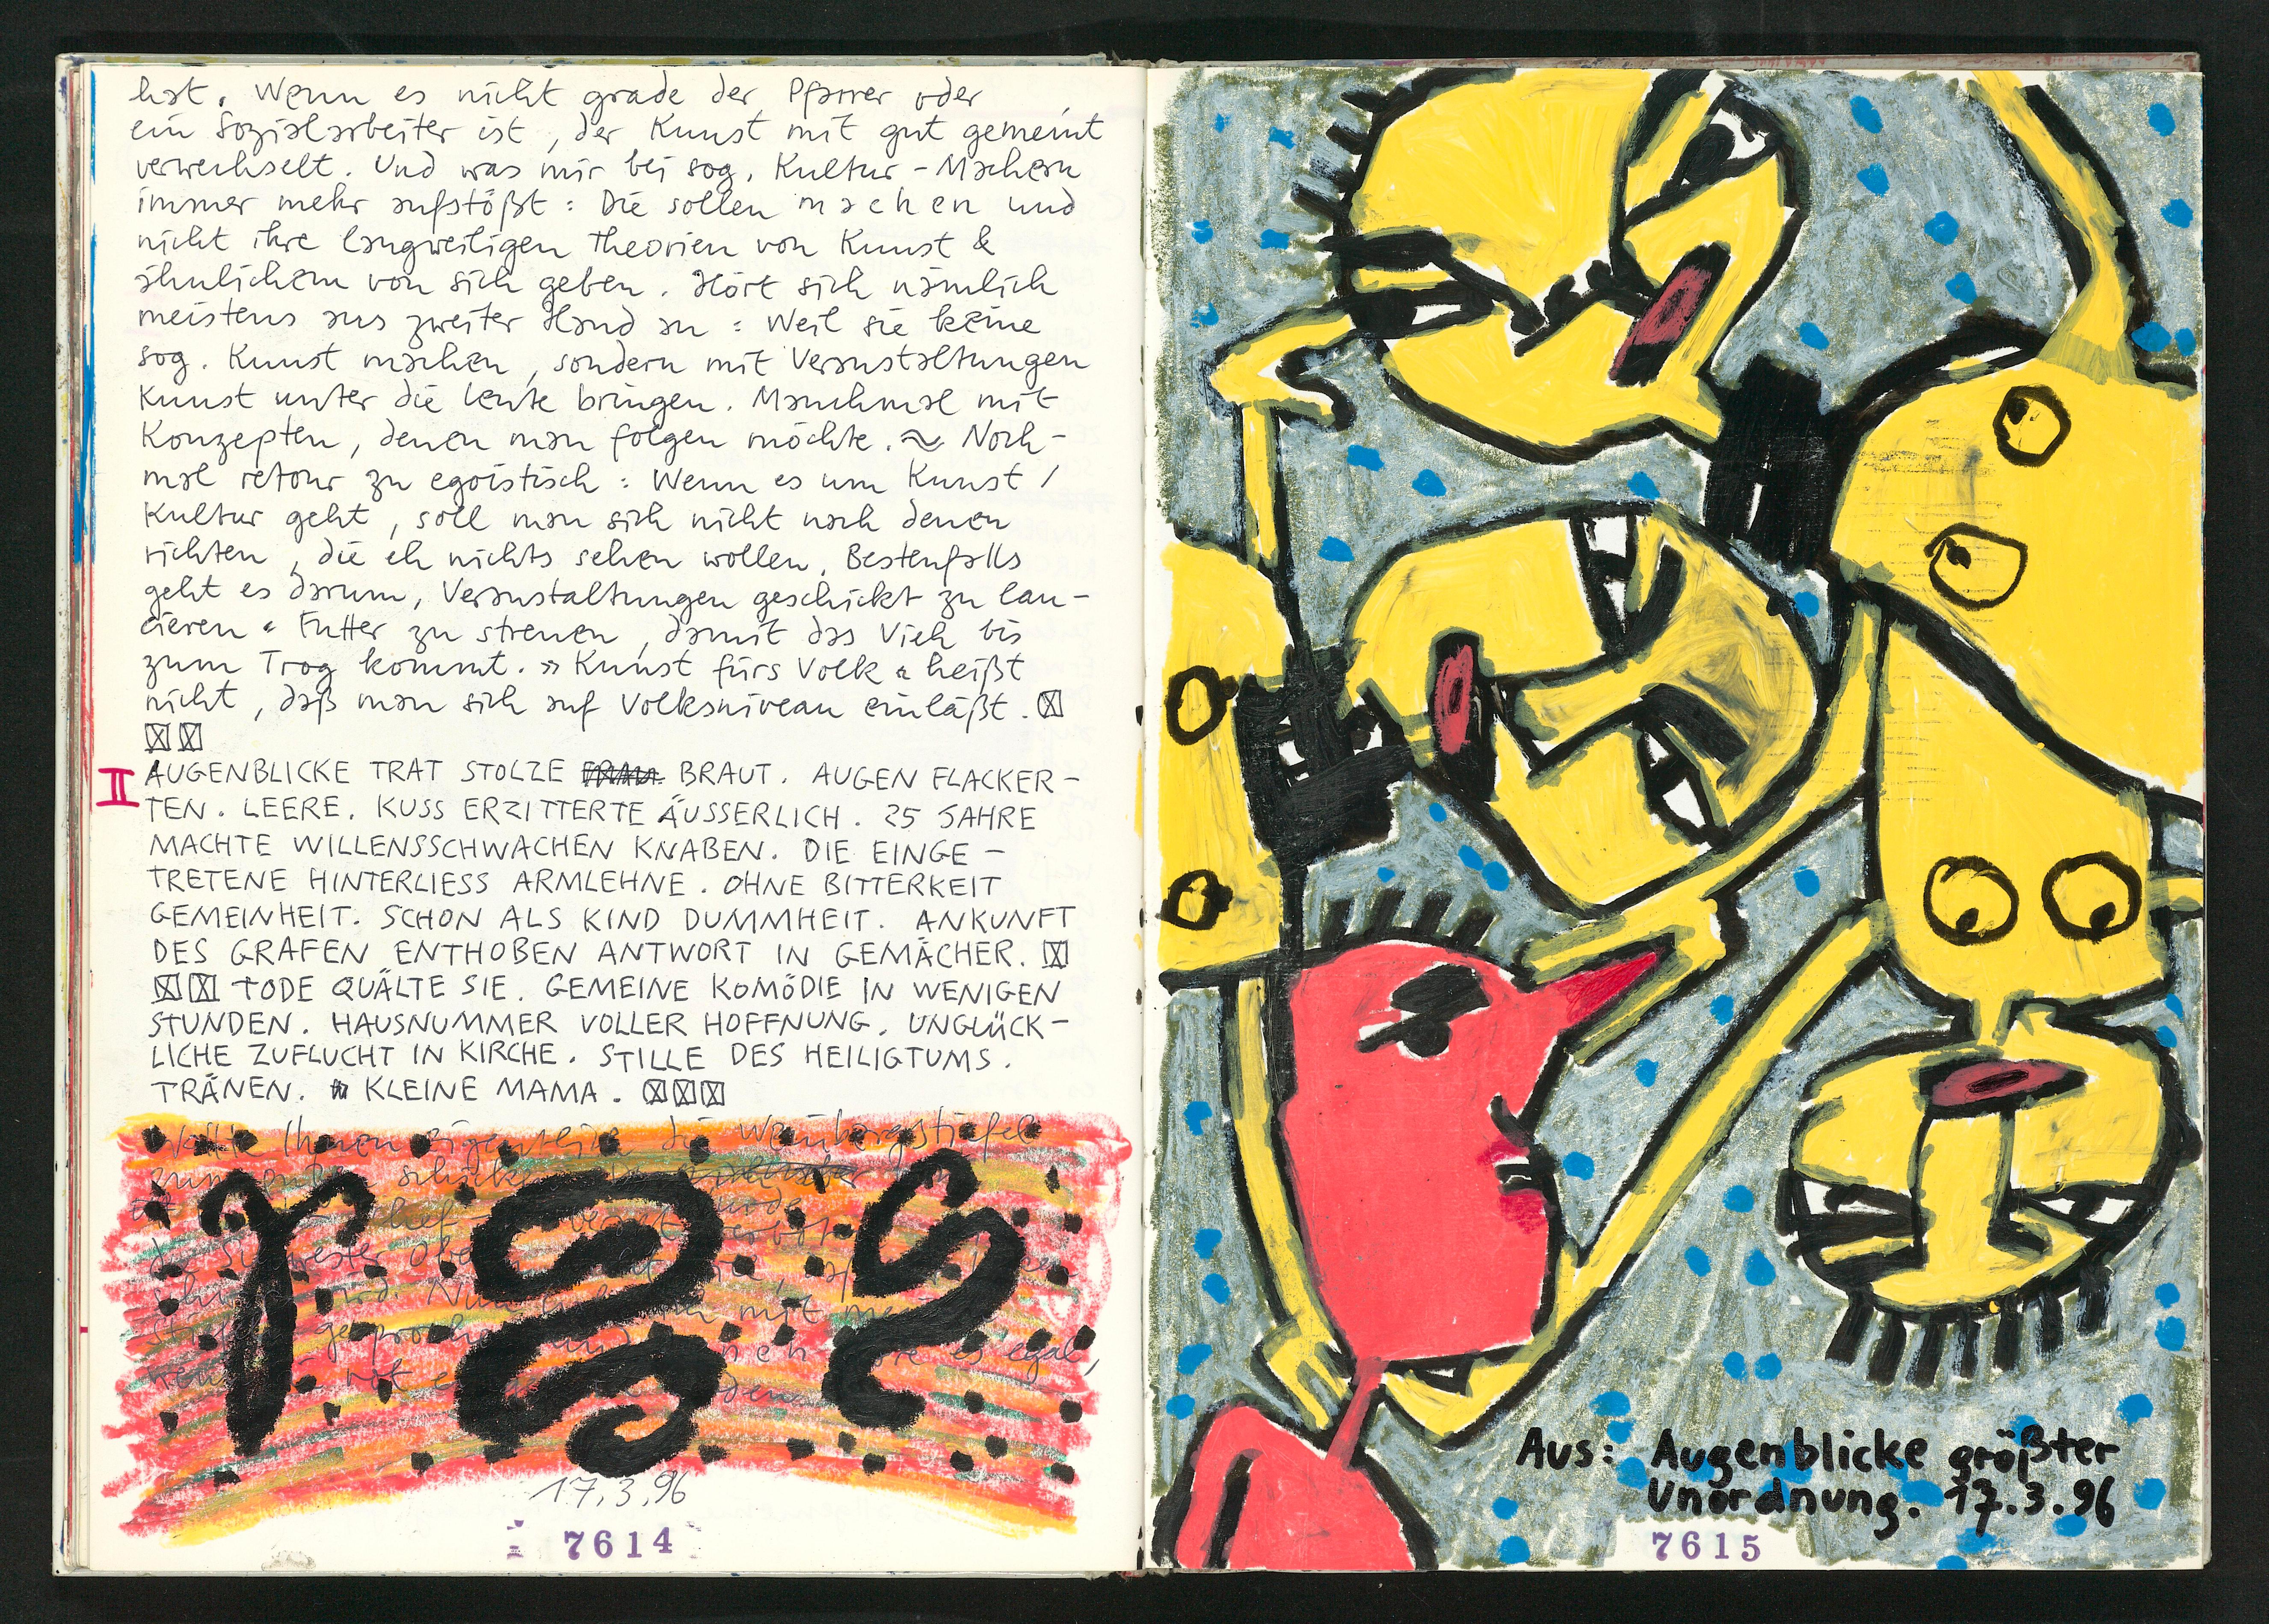 hat. Wenn es nicht grade der Pfarrer oder
ein Sozialarbeiter ist, der Kunst mit gut gemeint
verwechselt. Und was mir bei sog. Kultur-Machern
immer mehr aufstößt: Die sollen machen und
nicht ihre langweiligen Theorien von Kunst &
ähnlichem von sich geben. Hört sich nämlich
meistens aus zweiter Hand an: Weil sie keine
sog. Kunst machen, sondern mit Veranstaltungen
Kunst unter die Leute bringen. Manchmal mit
Konzepten, denen man folgen möchte. ~ Noch-
mal retour zu egoistisch: Wenn es um Kunst/
Kultur geht, soll man sich nicht nach denen
richten, die eh nichts sehen wollen. Bestenfalls
geht es darum, Veranstaltungen geschickt zu lan-
cieren • Futter zu streuen, damit das Vieh bis
zum Trog kommt. »Kunst fürs Volk« heißt
nicht, daß man sich auf Volksniveau einläßt. ☒
☒☒
II AUGENBLICKE TRAT STOLZE BRAUT. AUGEN FLACKER-
TEN. LEERE. KUSS ERZITTERTE ÄUSSERLICH. 25 JAHRE
MACHTE WILLENSSCHWACHEN KNABEN. DIE EINGE-
TRETENE HINTERLIESS ARMLEHNE. OHNE BITTERKEIT
GEMEINHEIT. SCHON ALS KIND DUMMHEIT. ANKUNFT
DES GRAFEN ENTHOBEN ANTWORT IN GEMÄCHER. ☒
☒☒ TODE QUÄLTE SIE. GEMEINE KOMÖDIE IN WENIGEN
STUNDEN. HAUSNUMMER VOLLER HOFFNUNG. UNGLÜCK-
LICHE ZUFLUCHT IN KIRCHE. STILLE DES HEILIGTUMS.
TRÄNEN. KLEINE MAMA. ☒☒☒
Ihnen eigentlich die Weinbergstiefel
zum
die Schwester
mit
egal,
rot
17.3.96
7614
Aus: Augenblicke größter
Unordnung. 17.3.96
7615